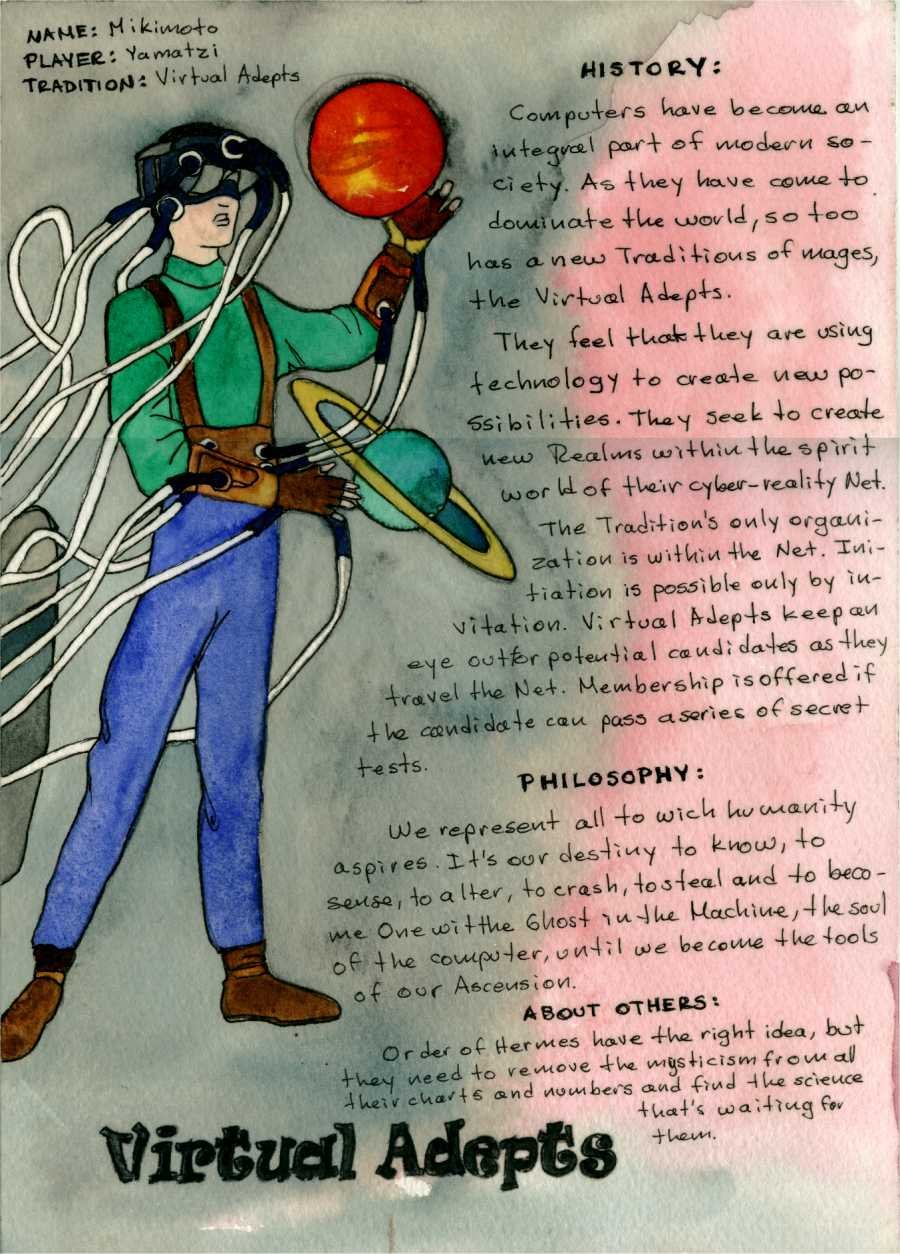 NAME: Mikimoto
PLAYER: Yamatzi
TRADITION: Virtual Adepts
HISTORY:
Computers have become an
integral part of modern so-
ciety. As they have come to
dominate the world, so too
has a new Traditions of mages,
the Virtual Adepts.
They feel that they are using
technology to create new po-
ssibilities. They seek to create
new Realms within the spirit
world of their cyber-reality Net.
The Tradition's only organi-
zation is within the Net. Ini-
tiation is possible only by in-
vitation. Virtual Adepts keep an
eye out for potential candidates as they
travel the Net. Membership is offered if
the candidate can pass a series of secret
tests.
PHILOSOPHY:
We represent all to wich humanity
aspires. It's our destiny to know, to
sense, to alter, to crash, to steal and to beco-
me One witthe Ghost in the Machine, the soul
of the computer, until we become the tools
of our Ascension.
ABOUT OTHERS:
Order of Hermes have the right idea, but
they need to remove the mysticism from all
their charts and numbers and find the science
that's waiting for
them.
Virtual Adepts